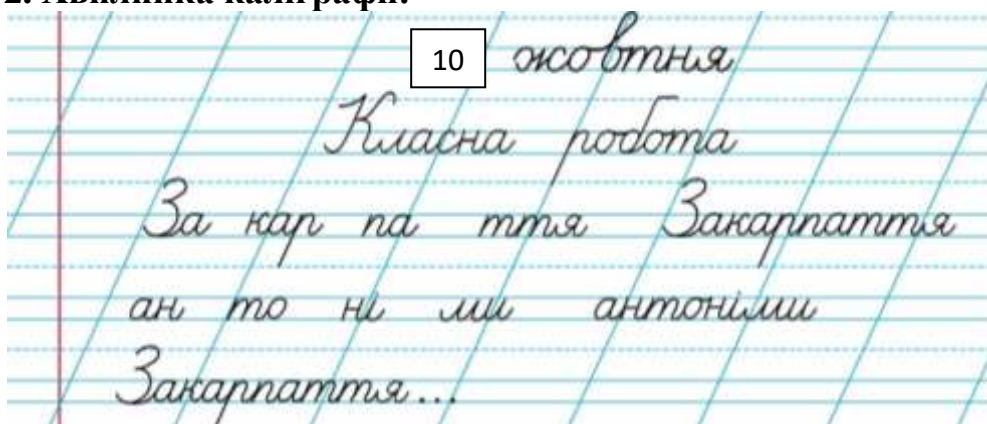 2. Хвилинка каліграфії.
10 жовтня
Класна робота
За кар па ття Закарпаття
ан то ні ми антоніми
Закарпаття...